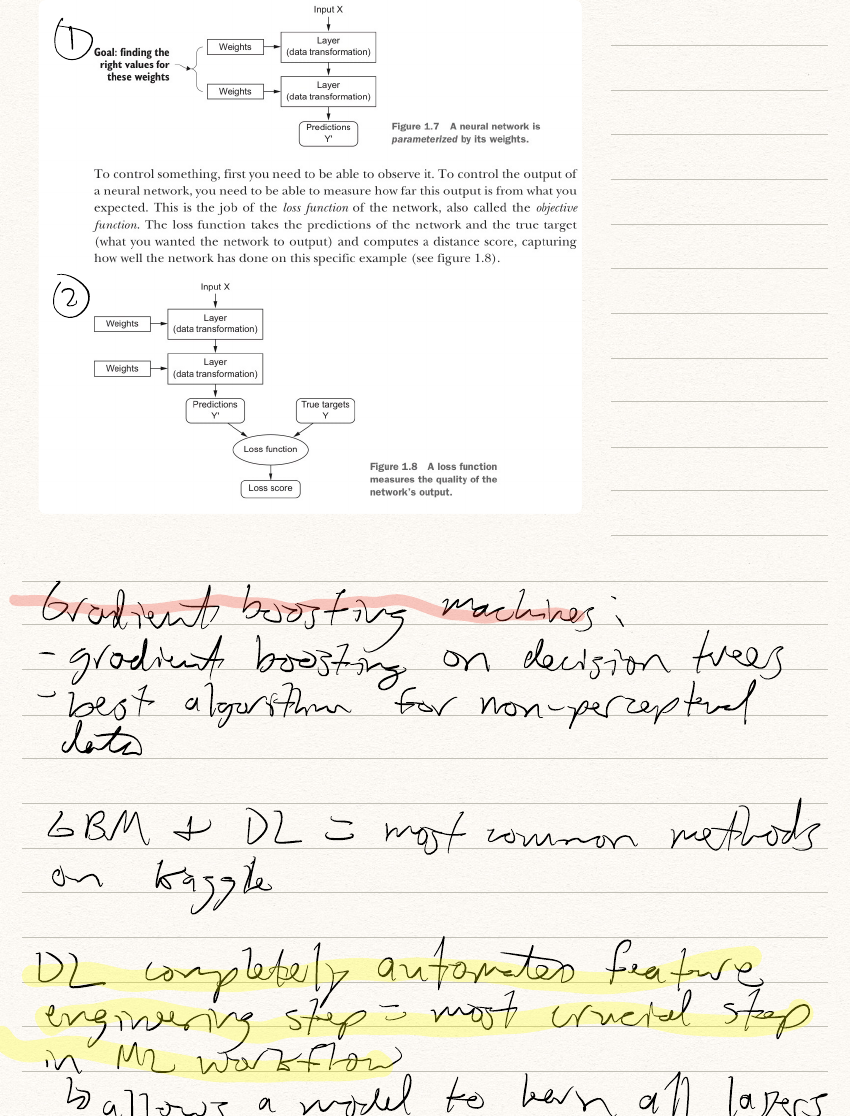 1
Input X
Goal: finding the
right values for
these weights
Weights
Layer
(data transformation)
Weights
Layer
(data transformation)
Predictions
Y'
Figure 1.7 A neural network is
parameterized by its weights.
To control something, first you need to be able to observe it. To control the output of
a neural network, you need to be able to measure how far this output is from what you
expected. This is the job of the loss function of the network, also called the objective
function. The loss function takes the predictions of the network and the true target
(what you wanted the network to output) and computes a distance score, capturing
how well the network has done on this specific example (see figure 1.8).
2
Input X
Weights
Layer
(data transformation)
Weights
Layer
(data transformation)
Predictions
Y'
True targets
Y
Loss function
Loss score
Figure 1.8 A loss function
measures the quality of the
network's output.
Gradient boosting machines:
- gradient boosting on decision trees
- best algorithm for non-perceptual
data
GBM + DL = most common methods
on kaggle
DL completely automates feature
engineering step = most crucial step
in ML workflow
↳ allows a model to learn all layers